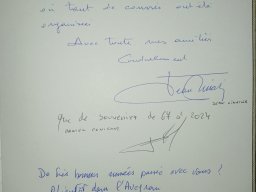 où tant de courses ont été
organisées
Avec toute mes amitiés
Cordialement
Jean
Que de souvenirs de 67 à 2024
De très bonnes années passées avec vous !
dans l'Aveyron